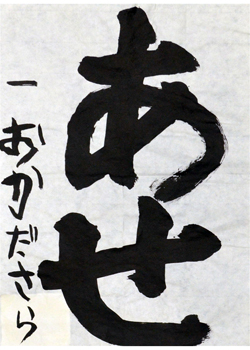 あせ
一 おかださら